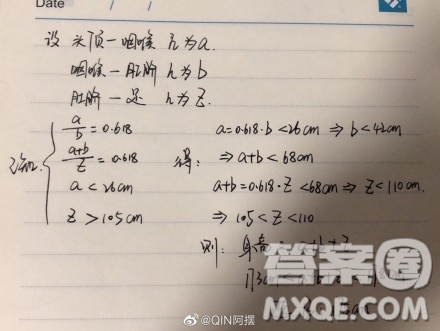 Date / /
设 头顶—咽喉 h为a.
咽喉—肚脐 h为b
肚脐—足 h为Z.
a/b = 0.618 a=0.618·b <26cm ⇒ b<42cm
(a+b)/Z = 0.618 得: ⇒ a+b < 68cm
a < 26cm a+b=0.618·Z <68cm ⇒ Z<110cm.
Z > 105cm ⇒ 105<Z<110
则: 身高
答案圈
@QIN阿摆